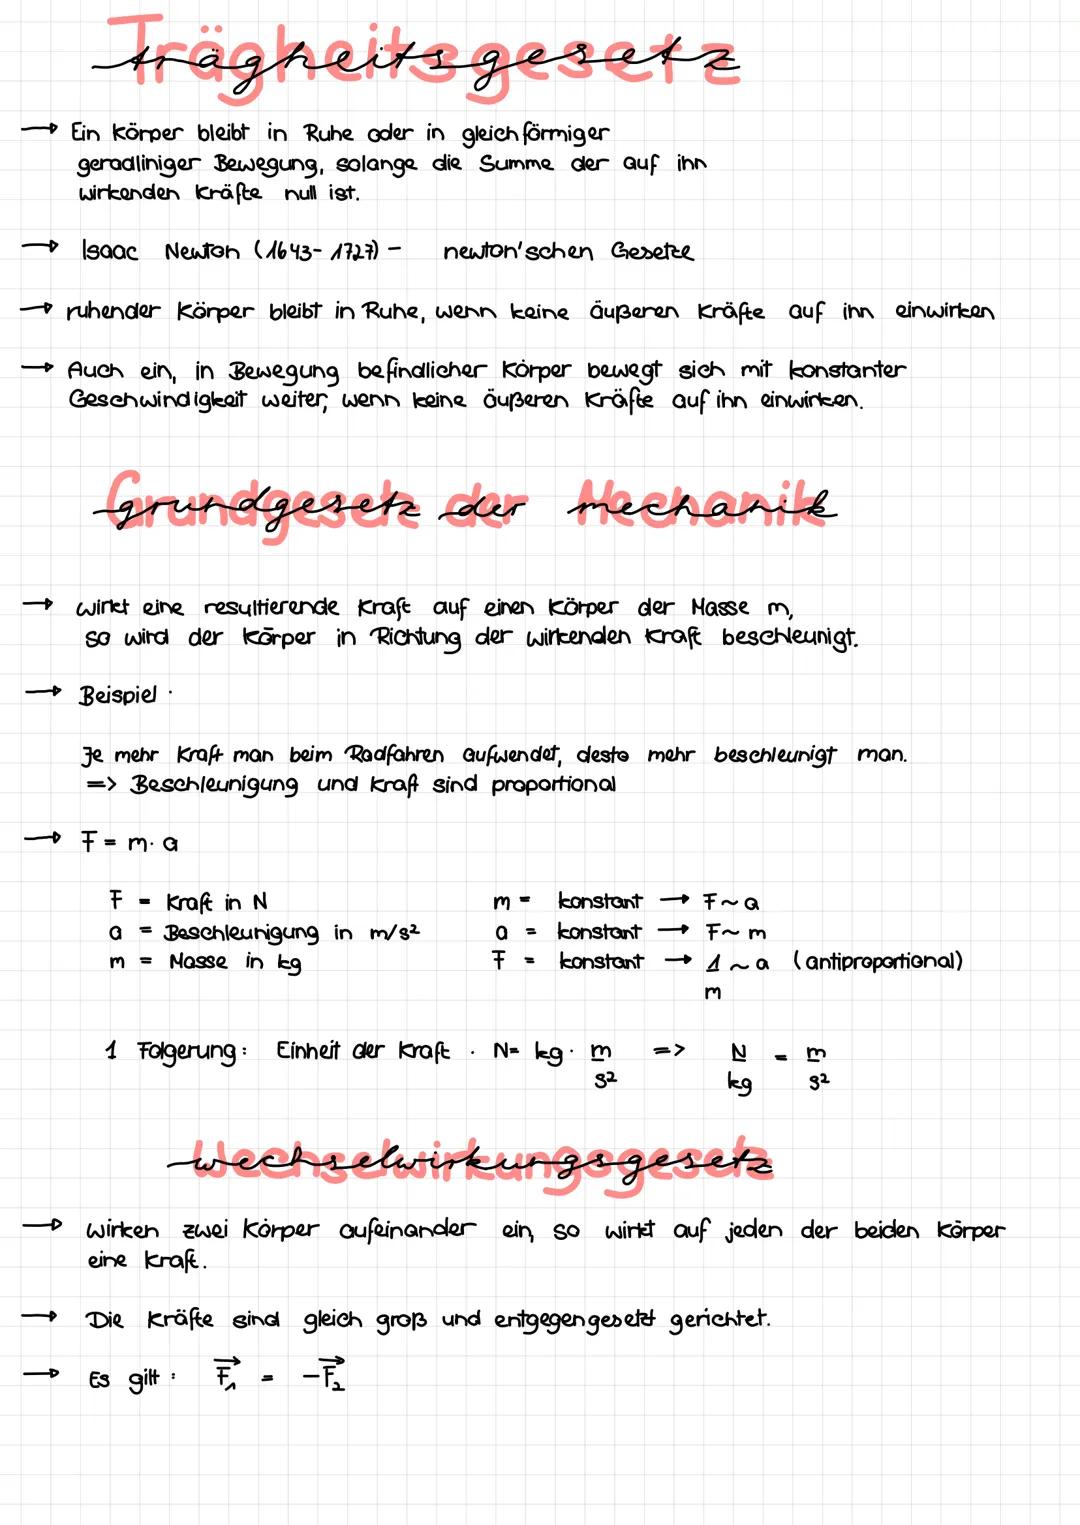 Trägheitsgesetz
→ Ein Körper bleibt in Ruhe oder in gleichförmiger
geradliniger Bewegung, solange die Summe der auf ihn
wirkenden Kräfte null ist.
→ Isaac Newton (1643-1727) - newton'schen Gesetze
→ ruhender Körper bleibt in Ruhe, wenn keine äußeren Kräfte auf ihn einwirken
→ Auch ein, in Bewegung befindlicher Körper bewegt sich mit konstanter
Geschwindigkeit weiter, wenn keine äußeren Kräfte auf ihn einwirken.
Grundgesetz der Mechanik
→ wirkt eine resultierende Kraft auf einen Körper der Masse m,
so wird der Körper in Richtung der wirkenden Kraft beschleunigt.
→ Beispiel:
Je mehr Kraft man beim Radfahren aufwendet, desto mehr beschleunigt man.
=> Beschleunigung und Kraft sind proportional
→ F = m · a
F = Kraft in N m = konstant → F ~ a
a = Beschleunigung in m/s² a = konstant → F ~ m
m = Masse in kg F = konstant → 1/m ~ a (antiproportional)
1 Folgerung: Einheit der Kraft : N = kg · m/s² => N/kg = m/s²
Wechselwirkungsgesetz
→ wirken zwei Körper aufeinander ein, so wirkt auf jeden der beiden Körper
eine Kraft.
→ Die Kräfte sind gleich groß und entgegengesetzt gerichtet.
→ Es gilt: F₁⃗ = -F₂⃗